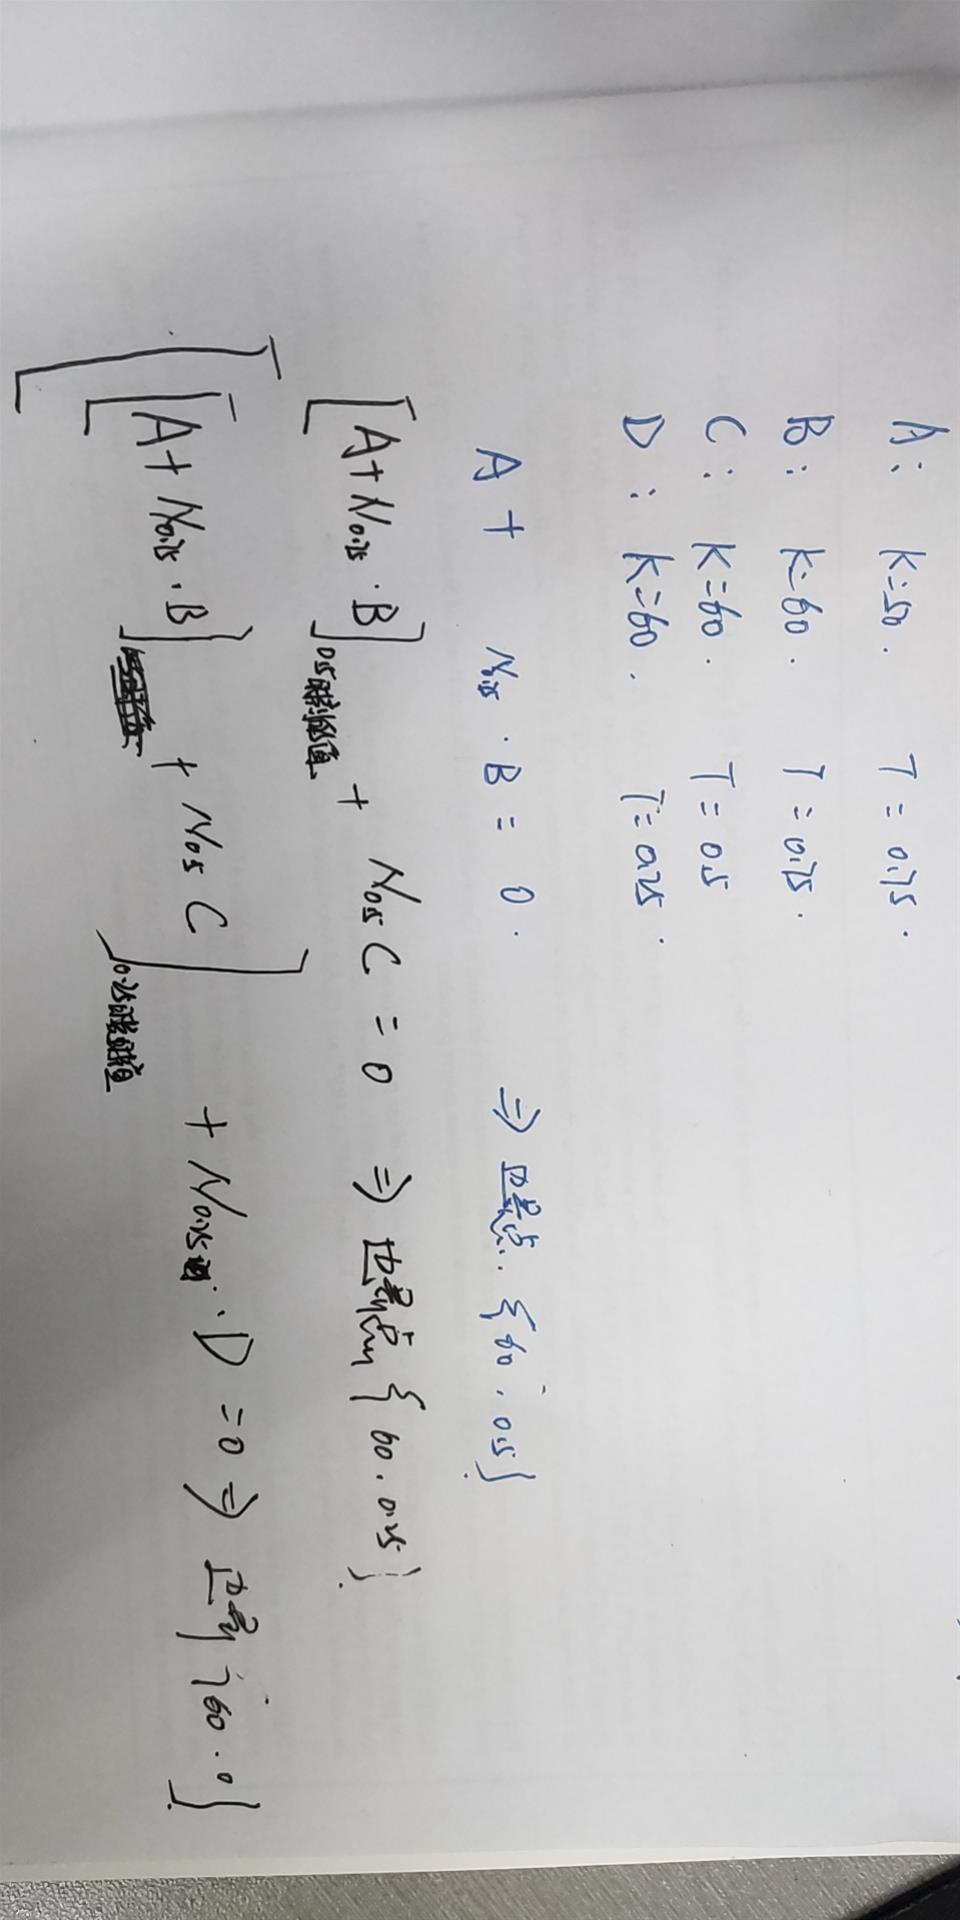 A: K=50. T=0.75.
B: K=60. T=0.75.
C: K=60. T=0.5
D: K=60. T=0.25.
A + N0.75 · B = 0. ⇒ 边界点: {60, 0.5}
[A+N0.75 · B]0.5时刻的值 + N0.5 C = 0 ⇒ 边界点 {60, 0.25}
[[A+N0.75 · B] + N0.5 C]0.25时刻的值 + N0.25 · D = 0 ⇒ 边界 {60, 0}